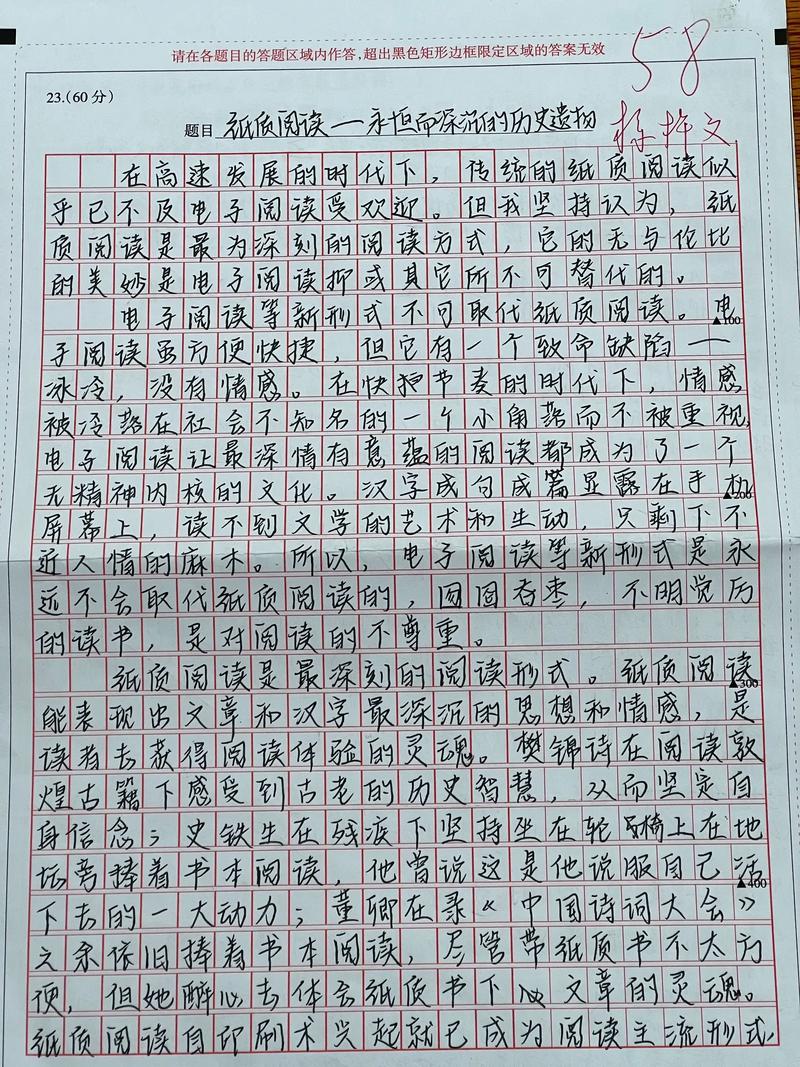 请在各题目的答题区域内作答,超出黑色矩形边框限定区域的答案无效
58
23.(60分)
题目 纸质阅读——永恒而深沉的历史遗物
在高速发展的时代下，传统的纸质阅读似
乎已不及电子阅读受欢迎。但我坚持认为，纸
质阅读是最为深刻的阅读方式，它的无与伦比
的美妙是电子阅读抑或其它所不可替代的。
电子阅读等新形式不可取代纸质阅读。电
▲100
子阅读虽方便快捷，但它有一个致命缺陷——
冰冷，没有情感。在快把节奏的时代下，情感
被冷落在社会不知名的一个小角落而不被重视，
电子阅读让最深情有意蕴的阅读都成为了一个
无精神内核的文化。汉字成句成篇显露在手机
▲200
屏幕上，读不到文学的艺术和生动，只剩下不
近人情的麻木。所以，电子阅读等新形式是永
远不会取代纸质阅读的，囫囵吞枣，不明觉厉
的读书，是对阅读的不尊重。
纸质阅读是最深刻的阅读形式。纸质阅读
▲300
能表现出文章和汉字最深沉的思想和情感，是
读者去获得阅读体验的灵魂。樊锦诗在阅读敦
煌古籍下感受到古老的历史智慧，从而坚定自
身信念；史铁生在残疾下坚持坐在轮椅上在地
坛旁捧着书本阅读，他曾说这是他说服自己活
▲400
下去的一大动力；董卿在录《中国诗词大会》
之余依旧捧着书本阅读，尽管带纸质书不太方
便，但她醉心去体会纸质书下心文章的灵魂。
纸质阅读自印刷术兴起就已成为阅读主流形式，